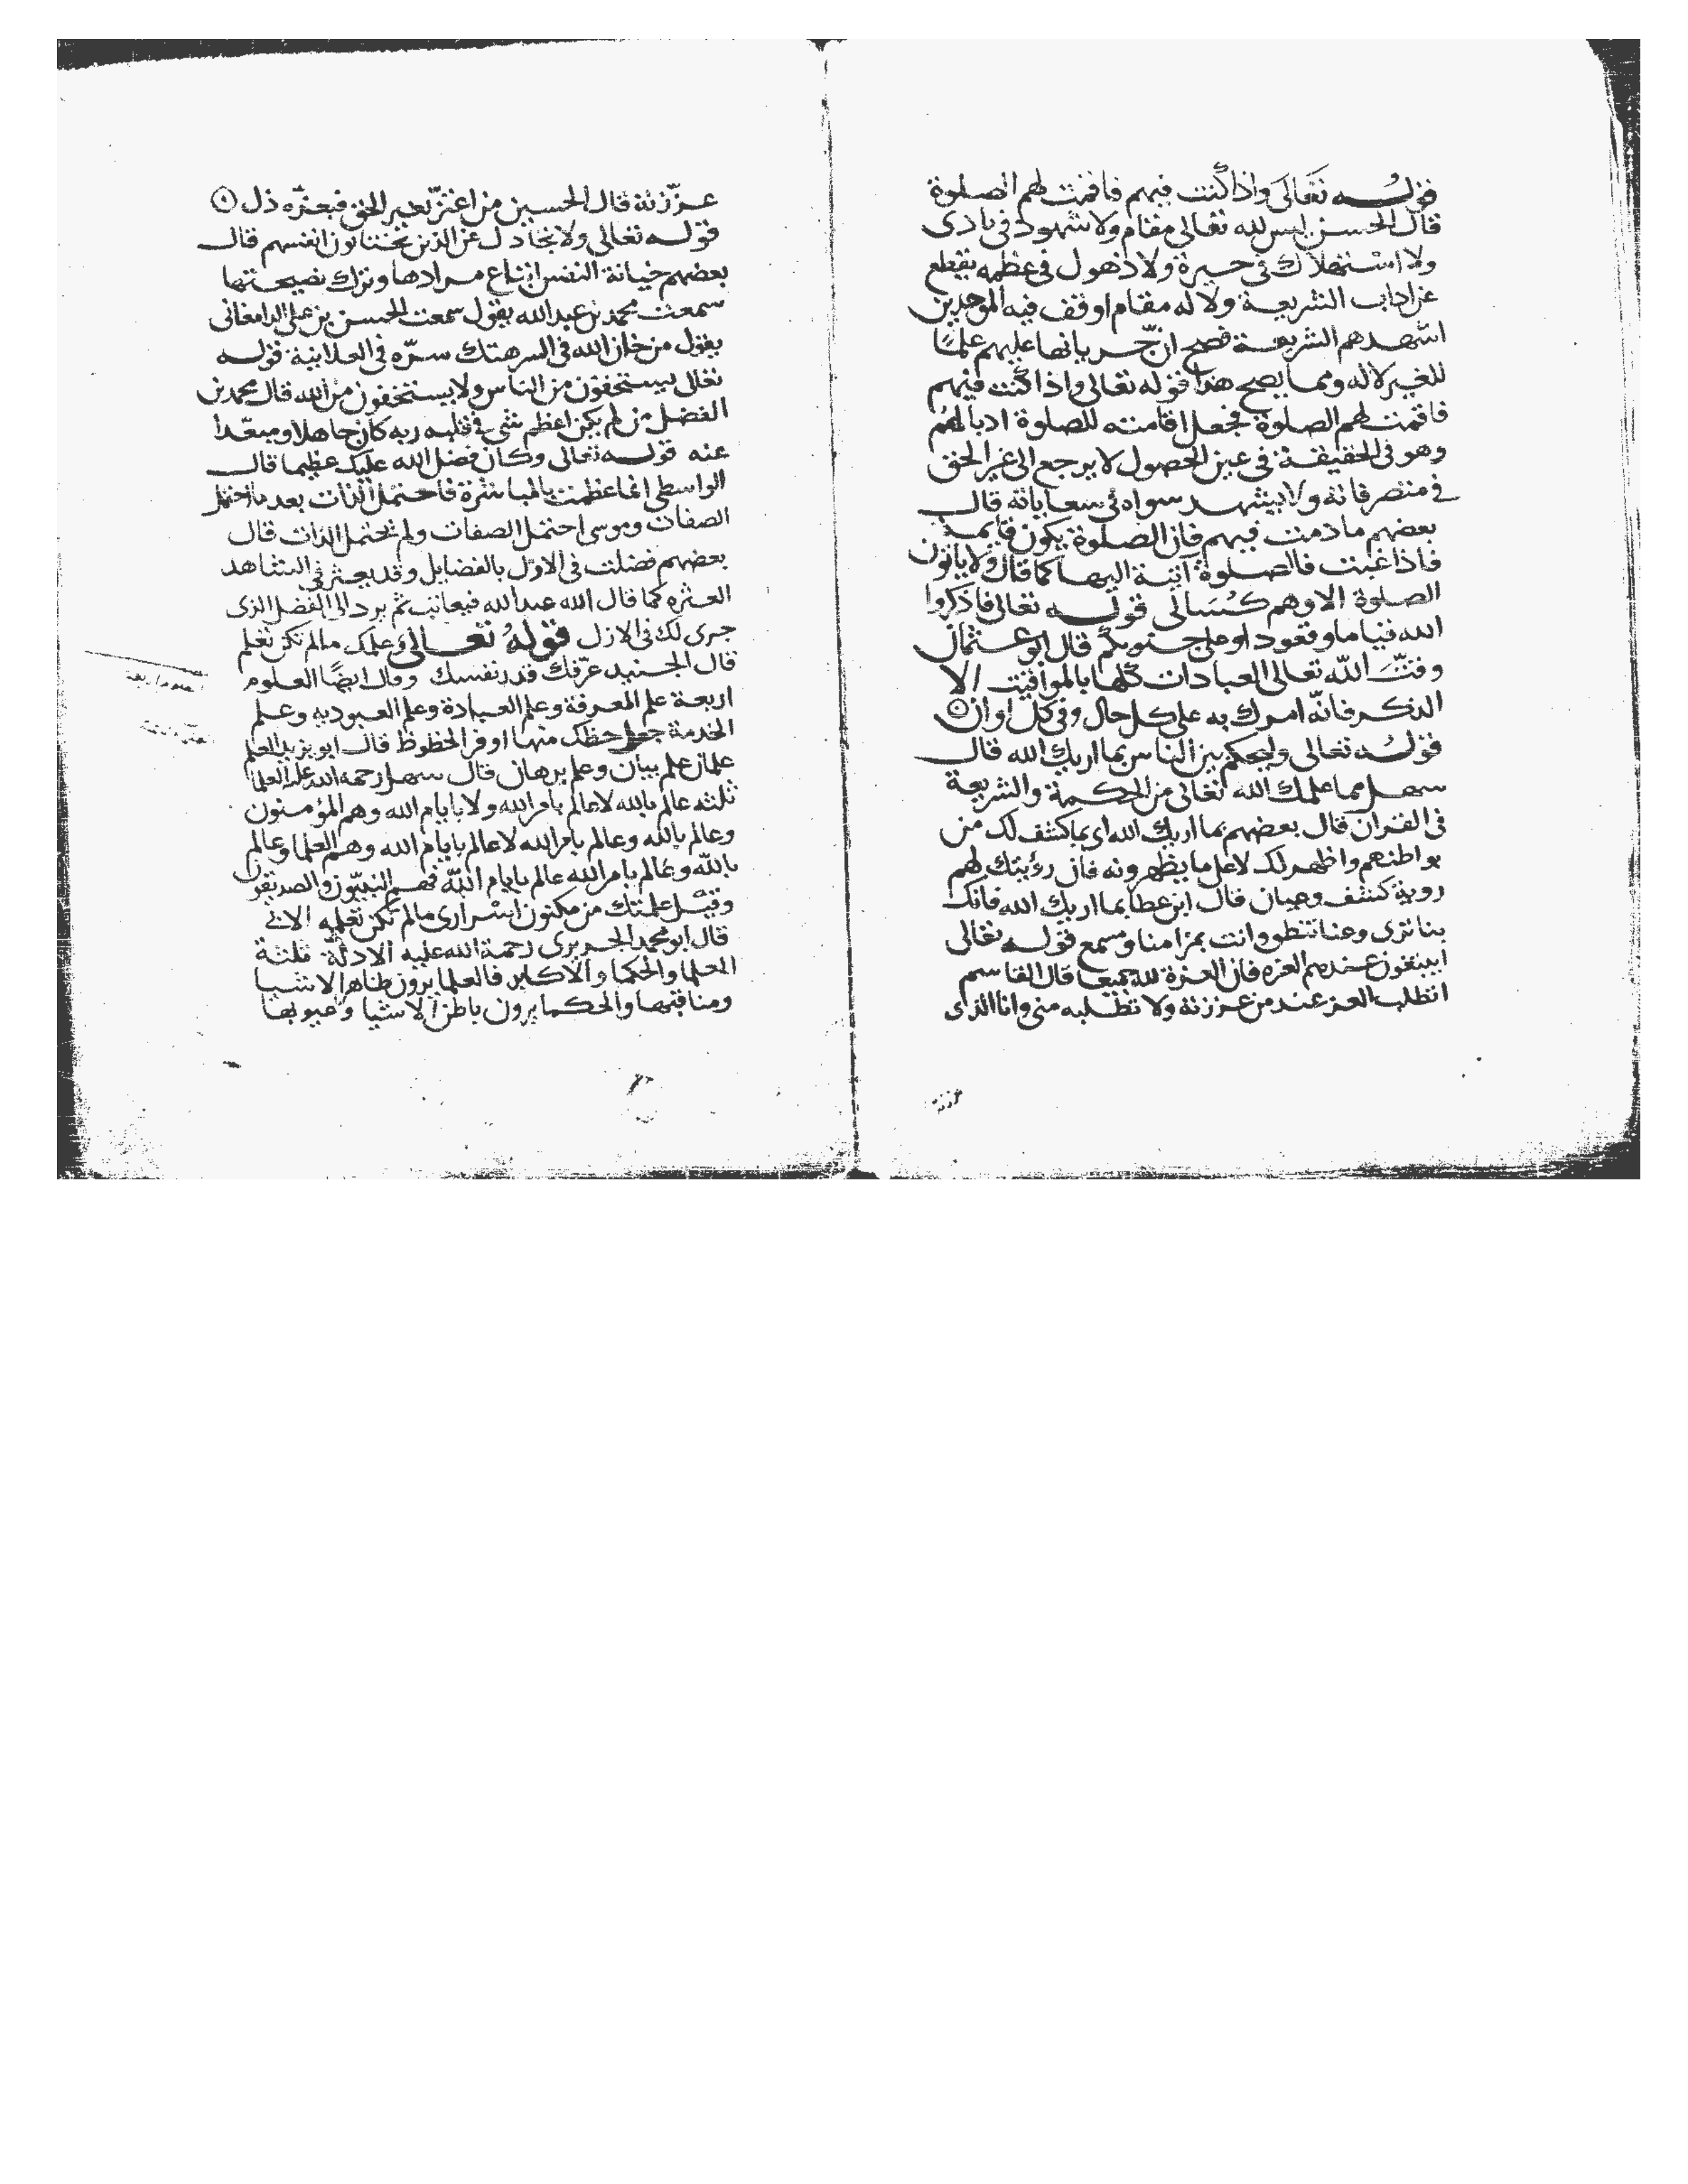 قوله تعالى واذا كنت فيهم فاقمت لهم الصلوة
قال الحسين ليس لله تعالى مقام ولا شهود في بادى
ولا استهلاك في حيرة ولا ذهول في عظمه يقطع
عن اداب الشريعة ولا له مقام اوقف فيه الموحدين
اشهدهم الشريعة فصح ان جريانها عليهم علما
للغير لا له ومما يصحح هذا قوله تعالى واذا كنت فيهم
فاقمت لهم الصلوة فجعل اقامته للصلوة ادبا لهم
وهو في الحقيقة في عين الحصول لا يرجع الى غير الحق
في متصرفاته ولا يشهد سواه في سعاياته قال
بعضهم ما دمت فيهم فان الصلوة يكون قايمة
فاذا غبت فالصلوة آتية اليها كما قال ولا ياتون
الصلوة الا وهم كسالى قوله تعالى فاذكروا
الله قياما وقعودا وعلى جنوبكم قال ابو عثمان
وقّت الله تعالى العبادات كلها بالمواقيت الا
الذكر فانه امرك به على كل حال وفي كل اوان
قوله تعالى وليحكم بين الناس بما اريك الله قال
سهل مما علمك الله تعالى من الحكمة والشريعة
في القران قال بعضهم بما اريك الله اي بما كشف لك من
بواطنهم واظهر لك لا على ما يظهرونه فان رؤيتك لهم
روية كشف وعيان قال ابن عطا بما اريك الله فانك
بنا ترى وعنا تنطق وانت بمرا منا ومسمع قوله تعالى
ايبتغون عندهم العزه فان العزة لله جميعا قال القاسم
اتطلب العز عند من عززته ولا تطلبه منى وانا الذى
عزّزته قال الحسين من اعتزّ بغير الحق فبعزّه ذل
قوله تعالى ولا تجادل عن الذين يختانون انفسهم قال
بعضهم خيانة النفس اتباع مرادها وترك نصيحتها
سمعت محمد بن عبد الله يقول سمعت الحسن بن علي الدامغانى
يقول من خان الله في السر هتك سرّه في العلانية قوله
تعالى يستخفون من الناس ولا يستخفون من الله قال محمد بن
الفضل من لم يكن اعظم شى في قلبه ربه كان جاهلا ومبعّدا
عنه قوله تعالى وكان فضل الله عليك عظيما قال
الواسطى انما عظمت بالمباشرة فاحتمل الذات بعد ما احتمل
الصفات وموسى احتمل الصفات ولم يحتمل الذات قال
بعضهم فضلت في الاول بالفضايل وقد يعثر في المشاهد
العثره كما قال الله عبد الله فيعاتب ثم يرد الى الفضل الذى
جرى لك في الازل قوله تعالى وعلمك مالم تكن تعلم
قال الجنيد عرّفك قدر نفسك وقال ايضا العلوم
اربعة علم المعرفة وعلم العبادة وعلم العبوديه وعلم
الخدمة جعل حظك منها اوفر الحظوظ قال ابو يزيد العلم
علمان علم بيان وعلم برهان قال سهل رحمه الله عليه العلما
ثلثه عالم بالله لا عالم بامر الله ولا بايام الله وهم المؤمنون
وعالم بالله وعالم بامر الله لا عالم بايام الله وهم العلما وعالم
بالله وعالم بامر الله عالم بايام الله فهم النبيّون والصديقون
وقيل علمتك من مكنون اسرارى مالم تكن تعلمه الا بى
قال ابو محمد الجريرى رحمة الله عليه الادلة ثلثة
العلما والحكما والاكابر فالعلما يرون ظاهر الاشيا
ومناقبها والحكما يرون باطن الاشيا وعيوبها